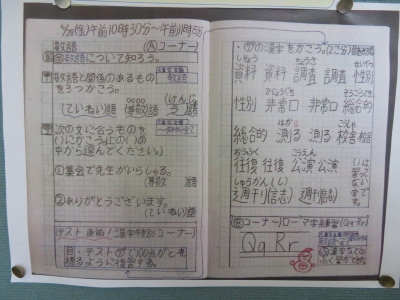 (金)午前10時30分〜午前11時
敬語 (Aコーナー)
敬語について知ろう。
敬語と関係のあるもの
を3つかこう。
(ていねい)語 (尊敬)語 (けんじょう)語
次の文に合うものを
()にかこう(上の()の
中から選んでください。)
①集会で先生がいらしゃる。
(尊敬 )語
②ありがとうございます。
(ていねい)語
テスト直前!漢字特別(コーナー)
目・テスト
100点がと
れるように練習する。
の漢字をかこう。(2こ分)
しりょう ちょうさ せいべつ
資料 資料 調査 調査 性別
ひじょうぐち そうごうてき
性別 非常口 非常口 総合的
はか こうしゃ
総合的 測る 測る 校舎 校舎
おうふく こうえん
往復 往復 公演 公演
しゅうかんし
週刊(誌) 週刊(誌)
()は
習って
ない
字で
す。
Bコーナー ローマ字練習(Qq・Kr)
Qq Kr